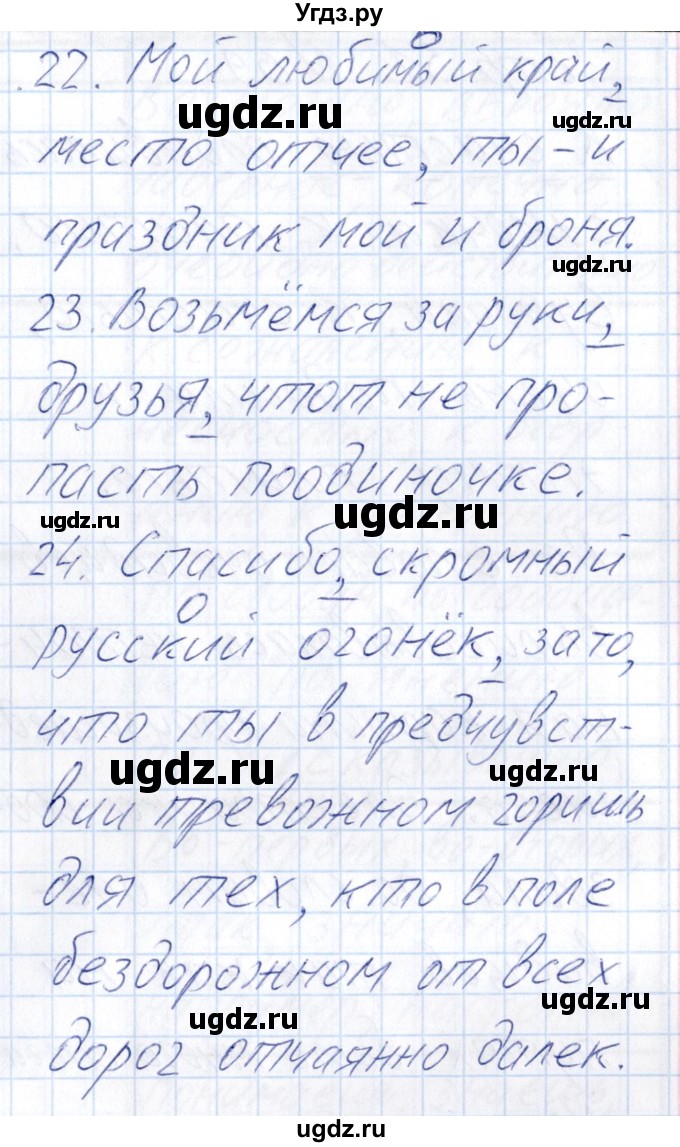 Угдз.ру
22. Мой любимый край,
ugdz.ru
ugdz.ru
место отчее, ты - и
праздник мой и броня.
ugdz.ru
23. Возьмёмся за руки,
ugdz.ru
друзья, чтоп не про-
пасть поодиночке.
ugdz.ru
ugdz.ru
24. Спасибо, скромный
русский огонёк, за то,
что ты в предчувст-
ugdz.ru
ugdz.ru
вии тревожном горишь
для тех, кто в поле
бездорожном от всех
ugdz.ru
ugdz.ru
дорог отчаянно далек.
ugdz.ru